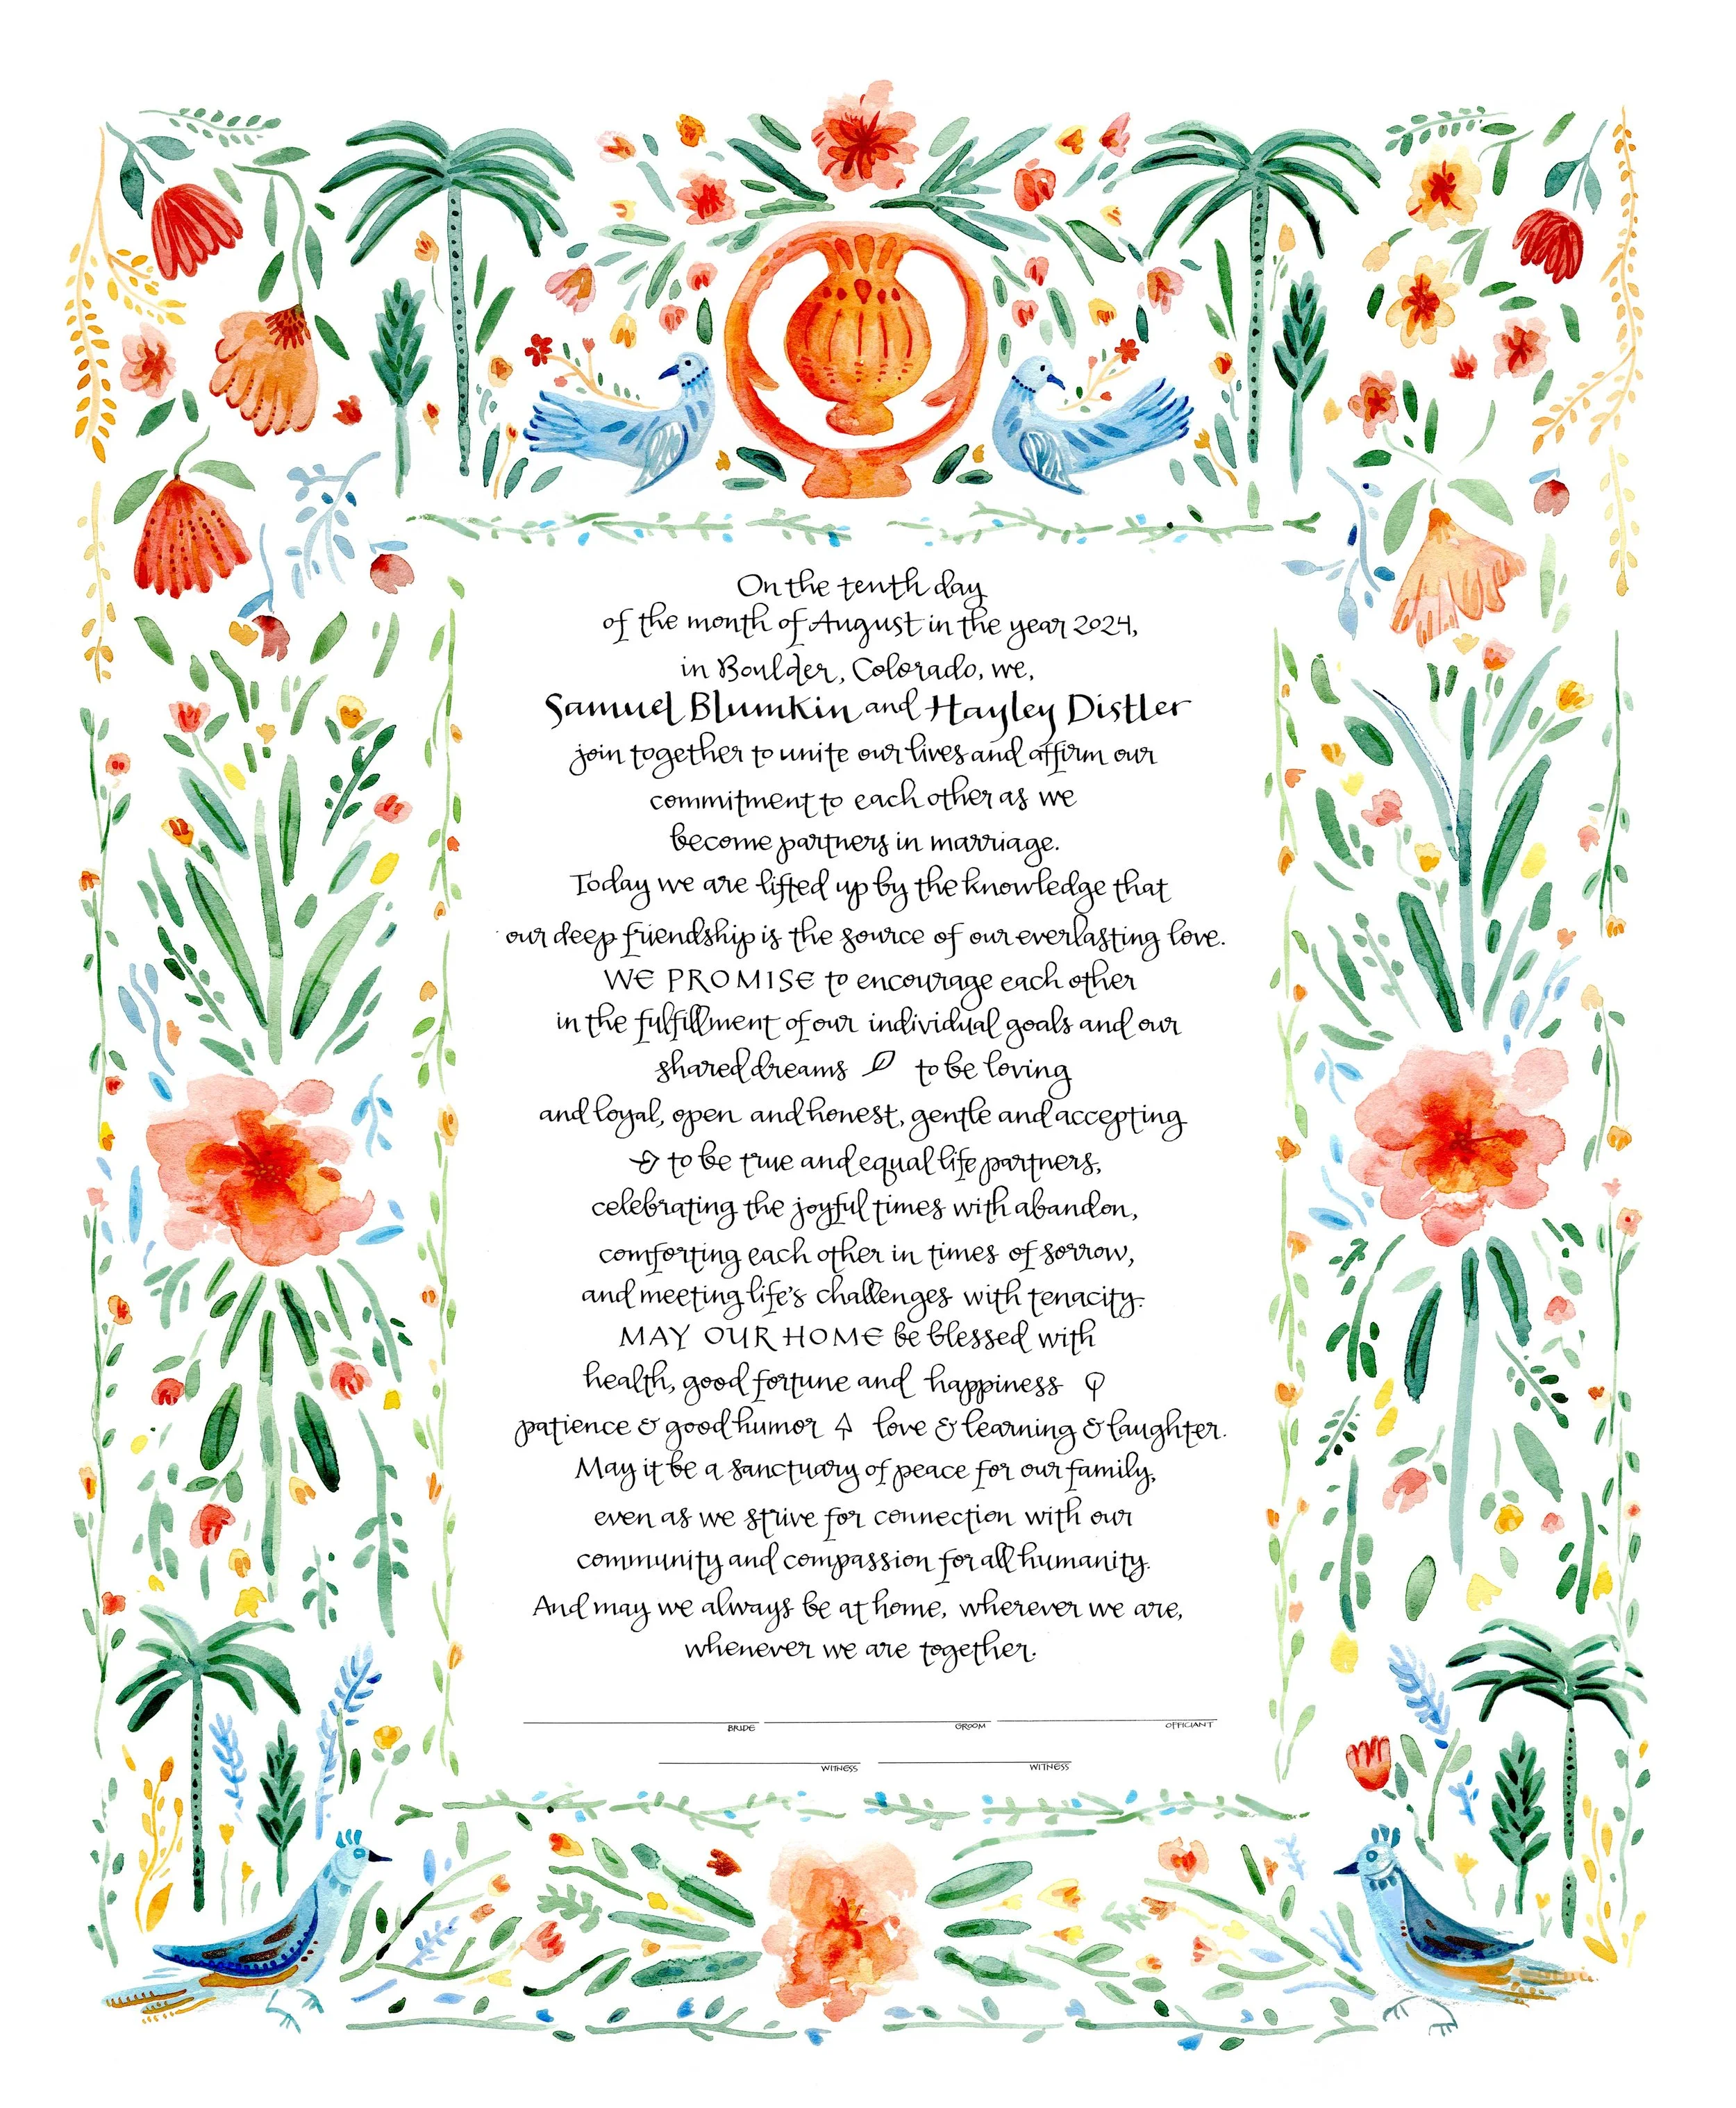 On the tenth day
of the month of August in the year 2024,
in Boulder, Colorado, we,
Samuel Blumkin and Hayley Distler
join together to unite our lives and affirm our
commitment to each other as we
become partners in marriage.
Today we are lifted up by the knowledge that
our deep friendship is the source of our everlasting love.
WE PROMISE to encourage each other
in the fulfillment of our individual goals and our
shared dreams to be loving
and loyal, open and honest, gentle and accepting
to be true and equal life partners,
celebrating the joyful times with abandon,
comforting each other in times of sorrow,
and meeting life's challenges with tenacity.
MAY OUR HOME be blessed with
health, good fortune and happiness
patience & good humor love & learning & laughter.
May it be a sanctuary of peace for our family,
even as we strive for connection with our
community and compassion for all humanity.
And may we always be at home, wherever we are,
whenever we are together.
BRIDE GROOM OFFICIANT
WITNESS WITNESS